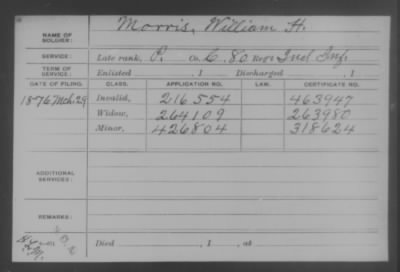 NAME OF SOLDIER: Morris, William H.
SERVICE: Late rank, P. Co. G. 80 Reg't Ind Inf.
TERM OF SERVICE: Enlisted , 1 Discharged , 1
DATE OF FILING. CLASS. APPLICATION NO. LAW. CERTIFICATE NO.
1876 Mch. 29 Invalid, 216.554 463947
Widow, 264109 263980
Minor, 426804 318624
ADDITIONAL SERVICES:
REMARKS:
Died , 1 , at